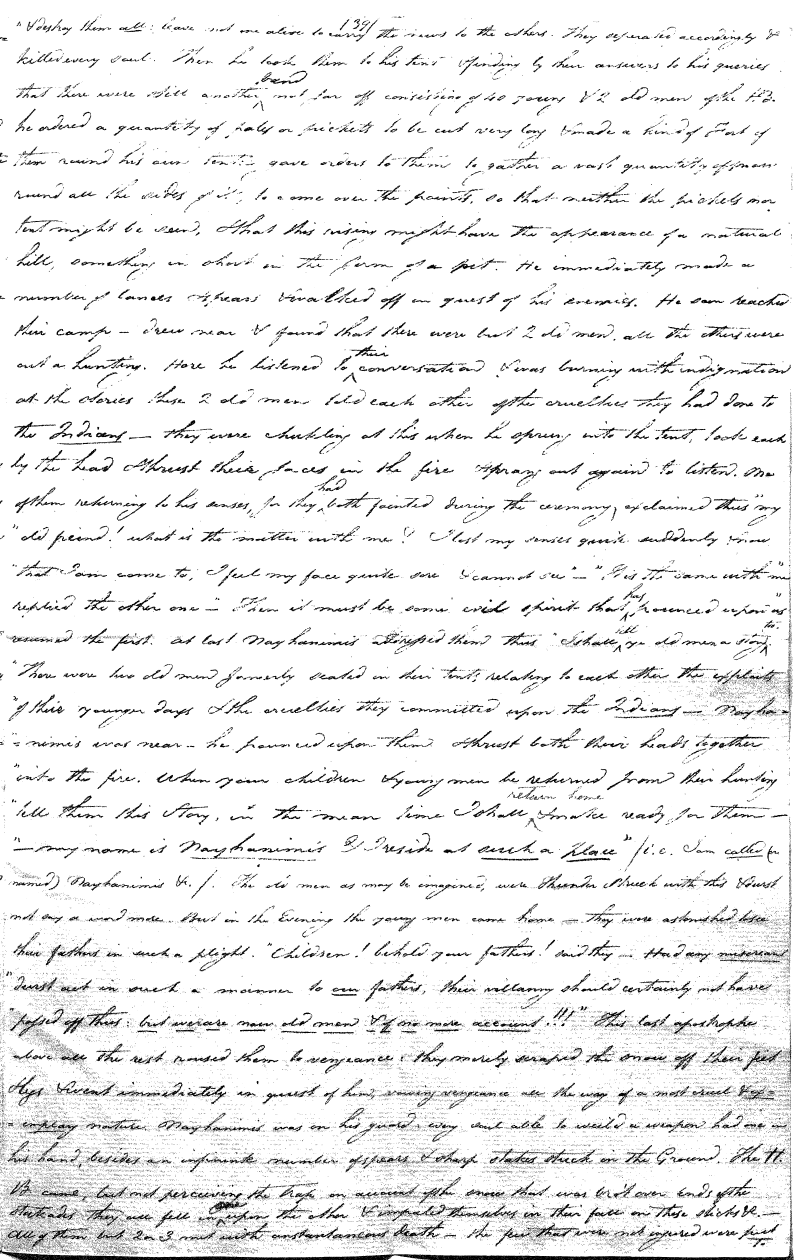 139
"& destroy them all: leave not one alive to carry the news to the others. They separated accordingly &
killed every soul. Then he took them to his tent & finding by their answers to his queries
that there were still another band not far off consisting of 40 young & 2 old men of the H.B.
he ordered a quantity of pales or pickets to be cut very long & made a kind of Fort of
them round his own tent: gave orders to them to gather a vast quantity of snow
round all the sides of it, to come over the points, so that neither the pickets nor
tent might be seen, & that this rising might have the appearance of a natural
hill, something in short in the form of a pit. He immediately made a
number of lances & spears & walked off in quest of his enemies. He soon reached
their camp — drew near & found that there were but 2 old men, all the others were
out a hunting. Here he listened to their conversation & was burning with indignation
at the stories these 2 old men told each other of the cruelties they had done to
the Indians — they were chukling at this when he sprung into the tent, took each
by the head & thrust their faces in the fire & sprang out again to listen. One
of them returning to his senses, for they had both fainted during the ceremony, exclaimed thus "my
"old friend! what is the matter with me? I lost my senses quite suddenly & now
"that I am come to, I feel my face quite sore & cannot see" — "It is the same with "me
replied the other one — "Then it must be some evil spirit that has pounced upon "us
resumed the first. At last Nayhanimis addressed them thus "I shall tell ye old men a story too.
"There were two old men formerly seated in their tent, relating to each other the exploits
"of their younger days & the cruelties they committed upon the Indians — Nayha=
"=nimis was near — he pounced upon them & thrust both their heads together
"into the fire. When your children & young men be returned from their hunting
"tell them this Story, in the mean time I shall return home & make ready for them —
"— my name is Nayhanimis & I reside at such a place" /i.e. I am called (or
named) Nayhanimis &c/. The old men as may be imagined, were thunder struck with this & durst
not say a word more. But in the Evening the young men came home — they were astonished to see
their fathers in such a plight. "Children! behold your fathers! said they — Had any miscreant
"durst act in such a manner to our fathers, their villany should certainly not have
"passed off thus: but we are now old men & of no more account!!!" This last apostrophe
above all the rest roused them to vengeance: they merely scraped the snow off their feet
& legs & went immediately in quest of him, vowing vengeance all the way of a most cruel & ex=
=emplay nature. Nayhanimis was on his guard: every soul able to weild a weapon had one in
his hand, besides an infinite number of spears & sharp stakes stuck in the Ground. The H.
B. came, but not perceiving the trap on account of the snow that was over ends of the
stockades they all fell in one upon the other & impaled themselves in their fall on these sticks &c. —
All of them but 2 or 3 met with instantaneous death — the few that were not injured were put